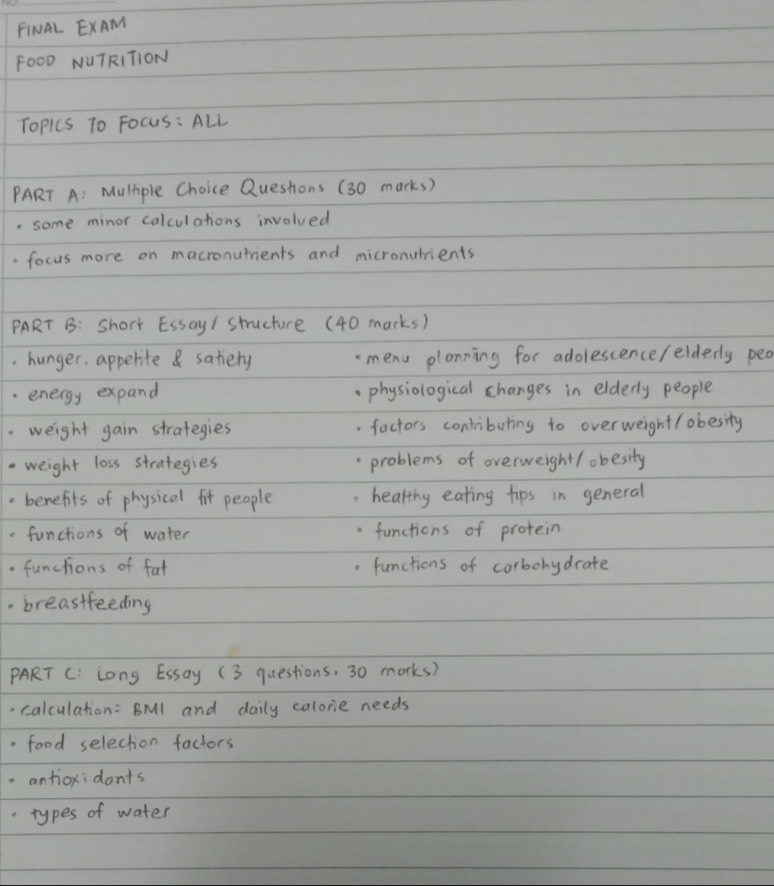 FINAL EXAM
FOOD NUTRITION
TOPICS TO FOCUS: ALL
PART A: Multiple Choice Questions (30 marks)
• some minor calculations involved
• focus more on macronutrients and micronutrients
PART B: Short Essay/ Structure (40 marks)
• hunger, appetite & satiety • menu planning for adolescence/elderly peo
• energy expand • physiological changes in elderly people
• weight gain strategies • factors contributing to overweight/obesity
• weight loss strategies • problems of overweight/obesity
• benefits of physical fit people • healthy eating tips in general
• functions of water • functions of protein
• functions of fat • functions of carbohydrate
• breastfeeding
PART C: Long Essay (3 questions, 30 marks)
• calculation: BMI and daily calorie needs
• food selection factors
• antioxidants
• types of water